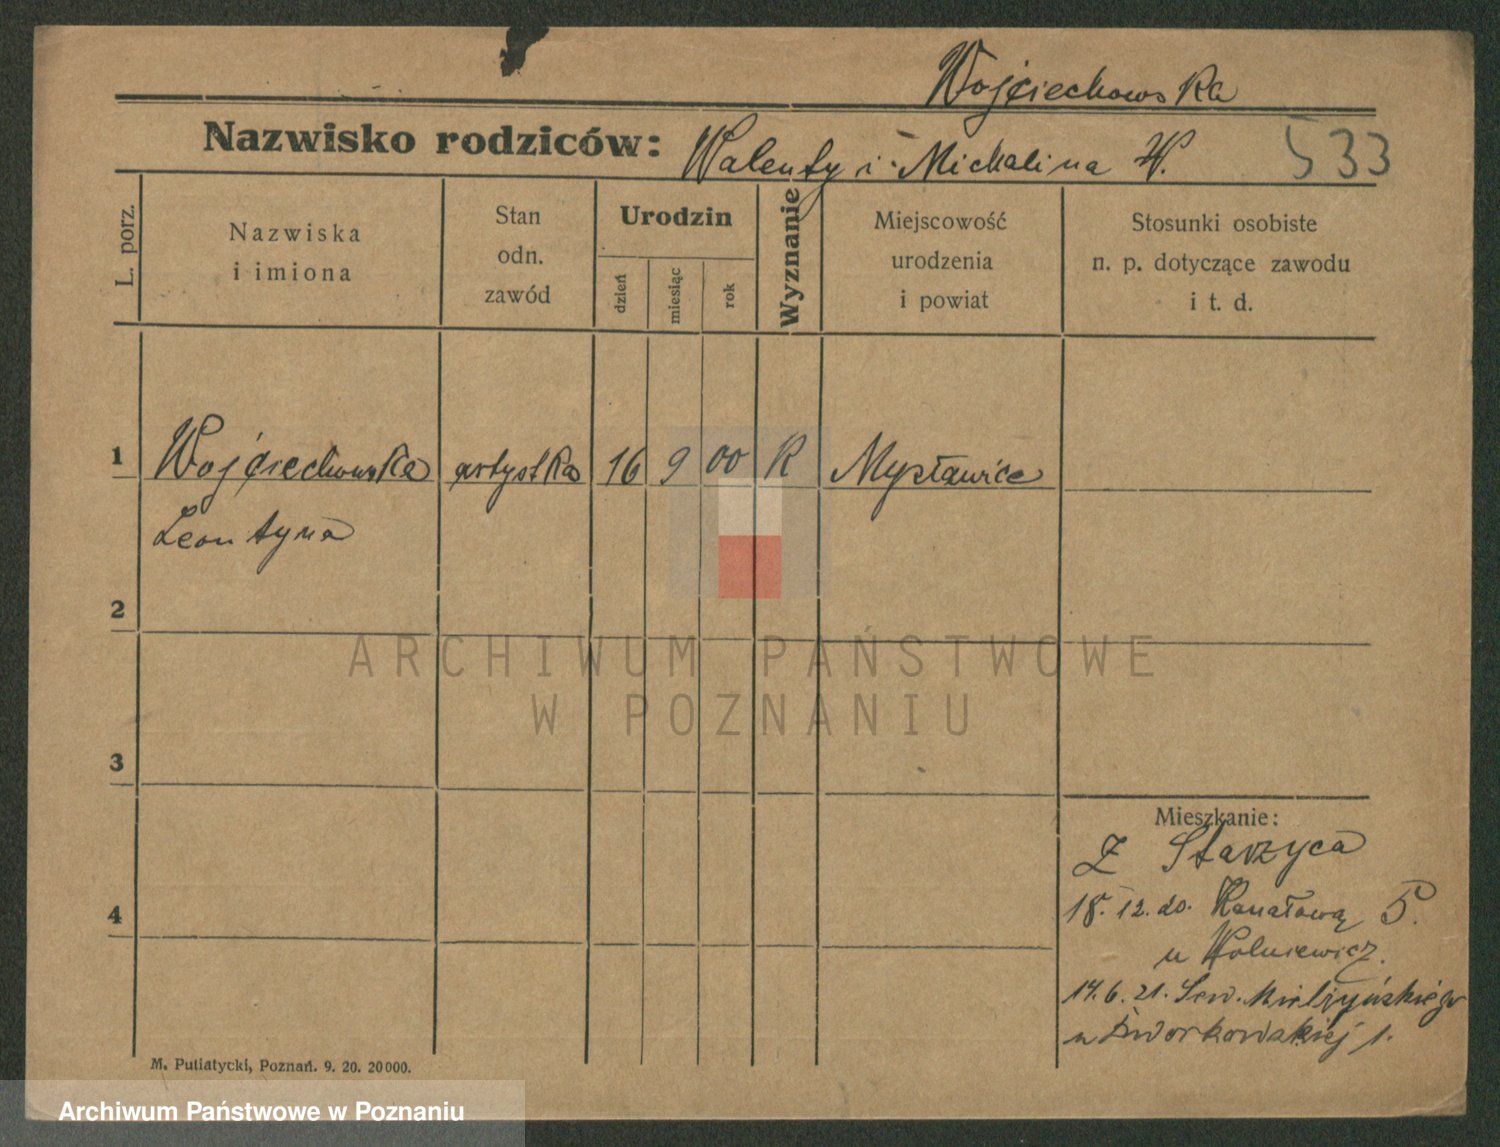 Wojciechowska
Nazwisko rodziców: Walenty i Michalina W. 533
L. porz.
Nazwiska
i imiona
Stan
odn.
zawód
Urodzin
dzień
miesiąc
rok
Wyznanie
Miejscowość
urodzenia
i powiat
Stosunki osobiste
n. p. dotyczące zawodu
i t. d.
1 Wojciechowska artystka 16 9 00 K
Leontyna
2
ARCHIWUM PAŃSTWOWE
W POZNANIU
3
Mieszkanie:
Z Starzyca
4
18. 12. 20. Kanałową 5.
u Wolniewicz.
14. 6. 21. Sew. Mielżyńskiego
u Dworkowskiej
M. Putiatycki, Poznań. 9. 20. 20000.
Archiwum Państwowe w Poznaniu